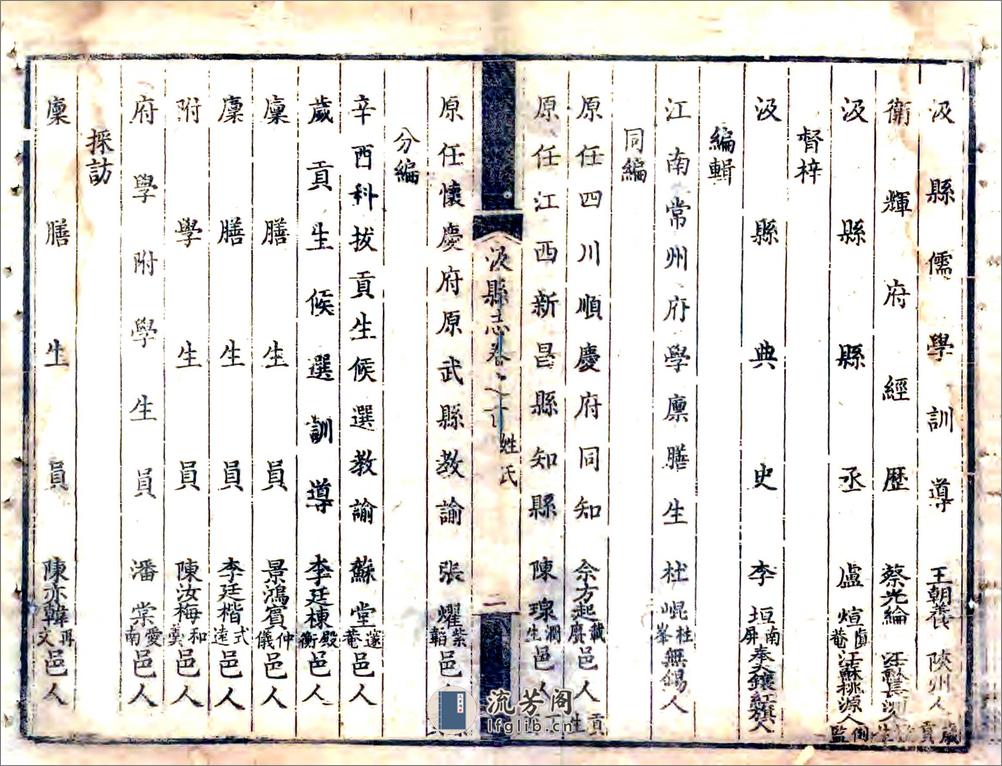 汲縣儒學訓導 王朝養 陝州人 歲貢
衛輝府經歷 蔡光綸 江蘇 人
汲縣縣丞 盧煊 江蘇桃源人 監
督梓
汲縣典史 李垣 南屏 奉天鑲紅旗人
編輯
江南常州府學廪膳生 杜崐 桂峯 無錫人
同編
原任四川順慶府同知 佘方起 載賡 邑人 貢生
原任江西新昌縣知縣 陳瑔 瀾生 邑人
汲縣志卷之首 姓氏 二
原任懷慶府原武縣教諭 張燿 紫韜 邑人
分編
辛酉科拔貢生候選教諭 蘇堂 蔭菴 邑人
歲貢生候選訓導 李廷棟 殿衡 邑人
廩膳生 景鴻賓 仲儀 邑人
廩膳生員 李廷楷 式遠 邑人
附學生員 陳汝梅 和羹 邑人
府學附學生員 潘棠 愛南 邑人
採訪
廩膳生員 陳亦韓 再文 邑人
流芳阁
lfglib.cn